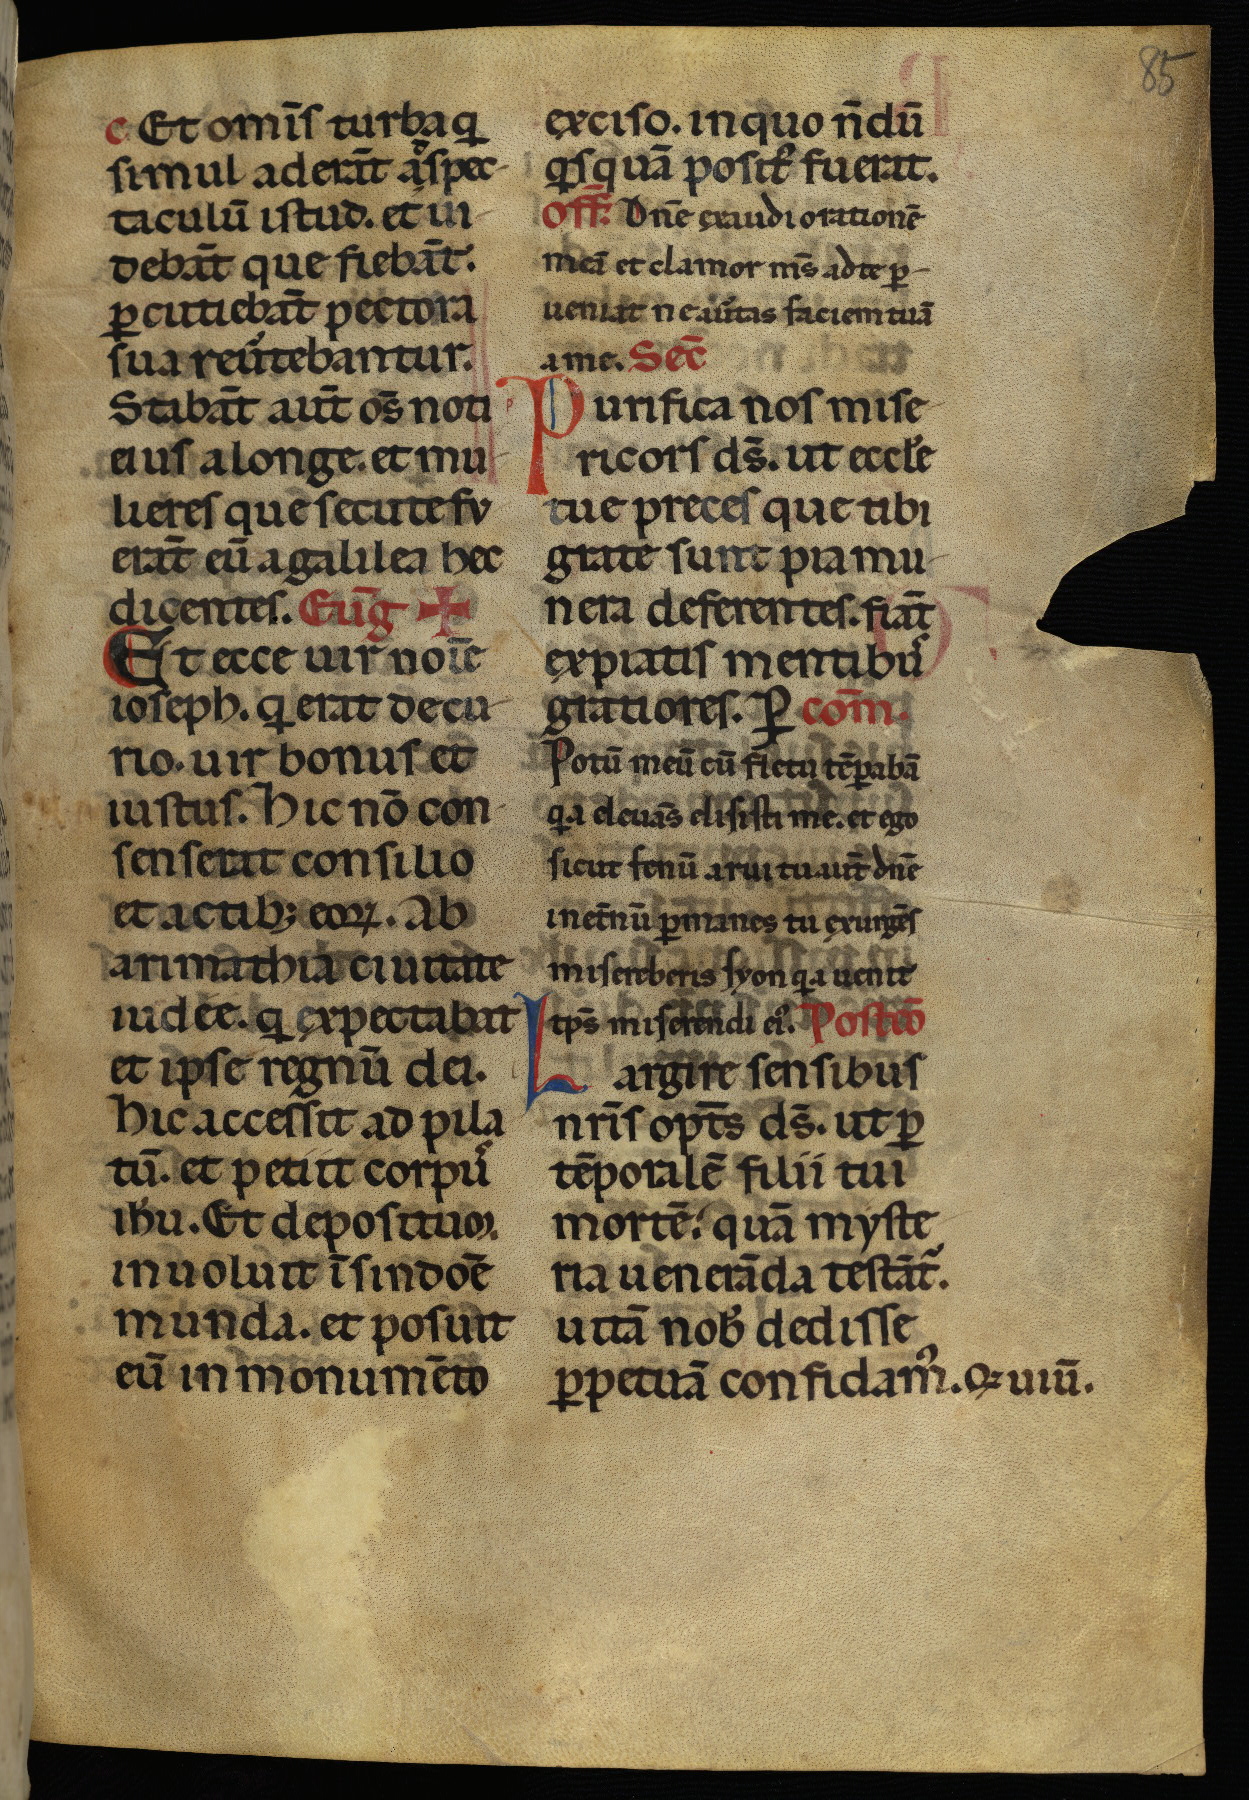 85
c Et om̄is turba q̄
simul aderāt aͩ spec-
taculū istud. et ui-
debāt que fiebāt.
ꝑcutiebāt pectora
sua reūtebantur.
Stabāt aūt om̄s noti
eius a longe. et mu-
lieres que secute fu
erāt eū a galilea hec
dicentes. Euḡ ✠
Et ecce uir noīe
ioseph. q̄ erat decu-
rio. uir bonus et
iustus. Hic nō con-
senserat consilio
et actibꝫ eoꝝ. Ab
arimathia ciuitate
iudee. q̄ expectabat
et ipse regnū dei.
Hic accessit ad pila
tū. et petiit corpuˢ
ih̄u. Et depositum.
inuoluit ī sindoē
munda. et posuit
eū in monumēto
exciso. in quo n̄dū
q̄squā positꝰ fuerat.
Off̄. Dn̄e exaudi orationē
meā et clamor m̄s ad te ꝑ-
ueniat ne aūtas faciem tuā
a me. Sec̄
Purifica nos mise-
ricors ds̄. ut eccl̄e
tue preces que tibi
grate sunt pia mu-
nera deferentes. fiāt
expiatis mentibuˢ
gratiores. P̄ com̄.
Potū meū cū fletu tēꝑabā
q̄a eleuās elisisti me. et ego
sicut fenū arui tu aūt dn̄e
in et̄nū ꝑmanes tu exurgēs
misereberis syon q̄a uenit
tp̄s miserendi eiꝰ. Postcō
Largire sensibus
nr̄is opt̄s ds̄. ut ꝑ
tēporalē filii tui
mortē. quā myste-
ria uenerāda testāt᷑.
uitā nob̄ dedisse
ꝑpetuā confidamꝰ. Qꝫ uiū.